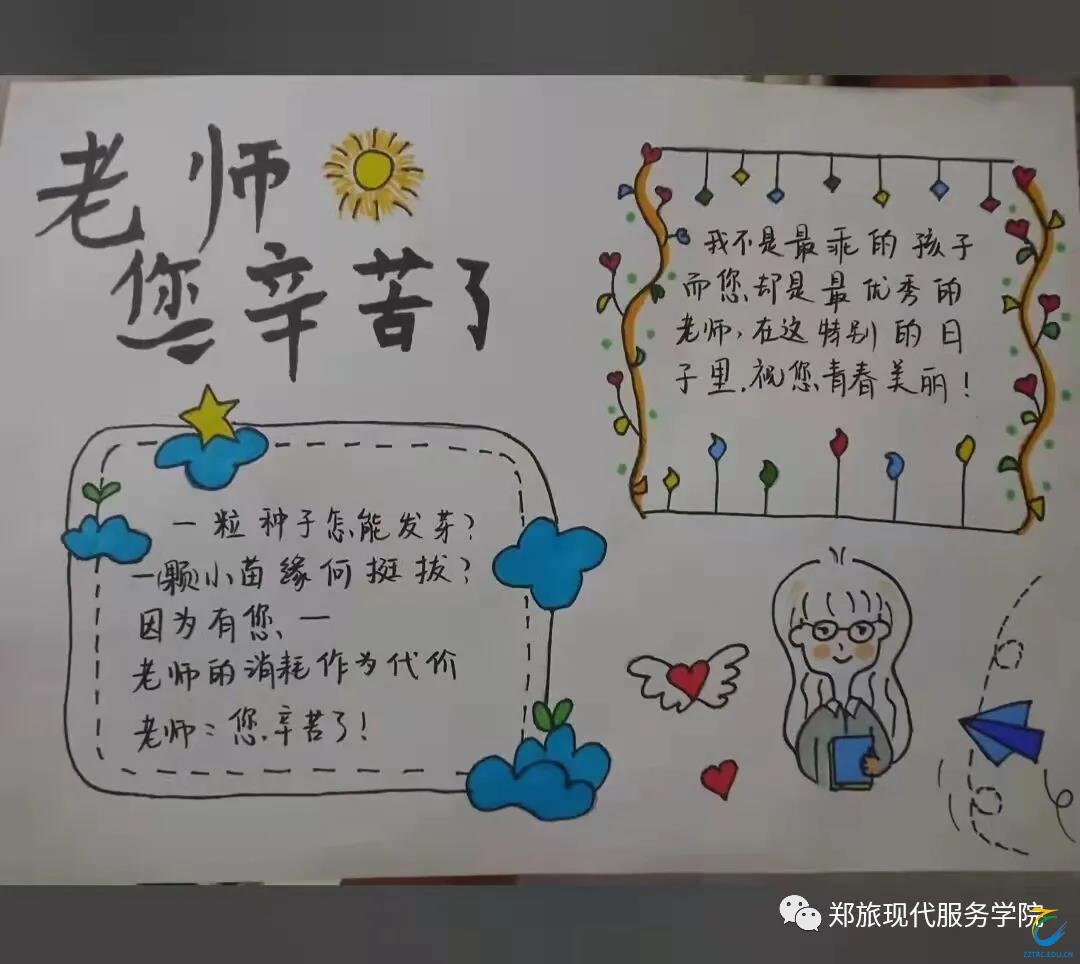 老师
您辛苦了
我不是最乖的孩子
而您却是最优秀的
老师，在这特别的日
子里，祝您青春美丽！
一粒种子怎能发芽？
一(颗)小苗缘何挺拔？
因为有您、一
老师的消耗作为代价
老师：您辛苦了！
郑旅现代服务学院
ZZTRC.EDU.CN